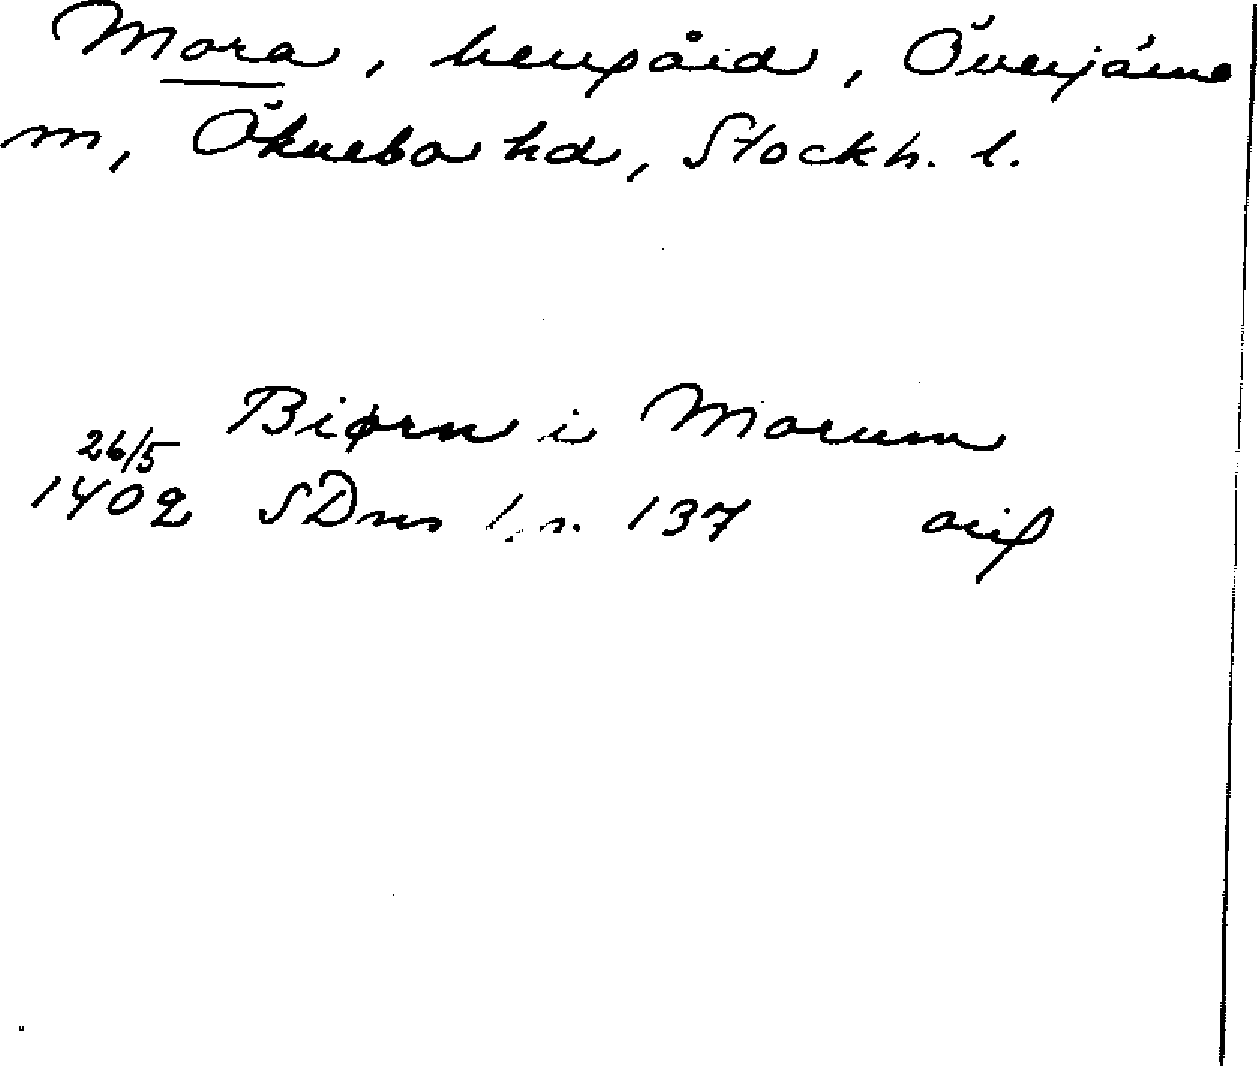 Mora, herrgård, Överjärna
sn, Öknebo hd, Stockh. l.
Biørn i Morum
26/5
1402 SDns 1, s. 137 orig